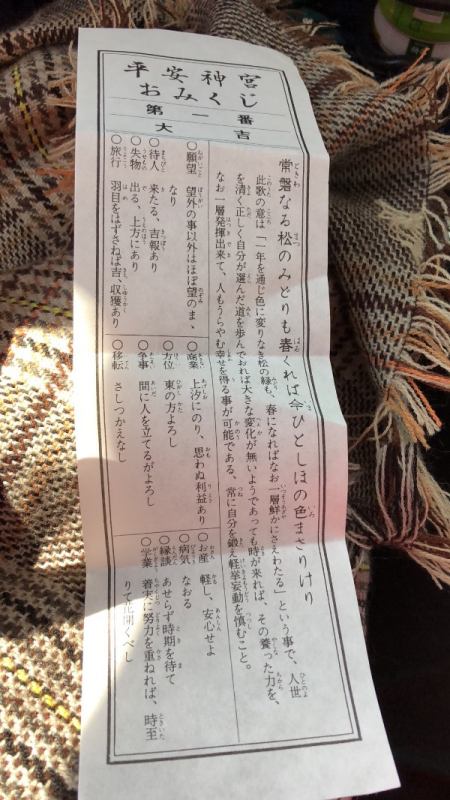 平安神宮
おみくじ
第一番
大吉
常磐なる松のみどりも春くれば今ひとしほの色まさりけり
此歌の意は「一年を通じ色に変りなき松の緑も、春になればなお一層鮮かにさえわたる」という事で、人世
を清く正しく自分が選んだ道を歩んでおれば大きな変化が無いようであっても時が来れば、その養った力を、
なお一層発揮出来て、人もうらやむ幸せを得る事が可能である、常に自分を鍛え軽挙妄動を慎むこと。
○願望 望外の事以外はほぼ望のまゝ
なり
○待人 来たる、吉報あり
○失物 出る、上方にあり
○旅行 羽目をはずさねば吉、収獲あり
○商業 上汐にのり、思わぬ利益あり
○方位 東の方よろし
○争事 間に人を立てるがよろし
○移転 さしつかえなし
○お産 軽し、安心せよ
○病気 なおる
○縁談 あせらず時期を待て
○学業 着実に努力を重ねれば、時至
りて花開くべし